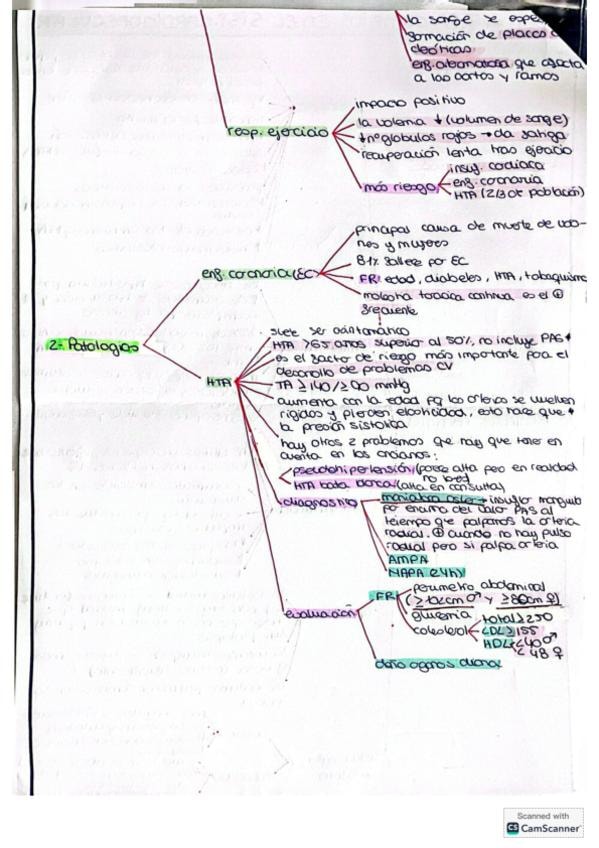 la sangre se espe
formación de placas
enf. que afecta
a las aortas y ramas
resp. ejercicio
impacto positivo
la volemia ↓ (volumen de sangre)
↓ nº glóbulos rojos → da fatiga
recuperación lenta tras ejercicio
más riesgo
insuf. cardiaca
enf. coronaria
HTA (2/3 de población)
2. Patologías
enf. coronaria (EC)
principal causa de muerte de
nes y mujeres
81% fallece por EC
FR: edad, diabetes, HTA, tabaquismo
molestia torácica continua es el ⊕
frecuente
HTA
suele ser asintomático
HTA >65 años superior al 50%, no incluye PAS↑
es el factor de riesgo más importante para el
desarrollo de problemas CV
TA ≥140/≥90 mmHg
aumenta con la edad pq las arterias se vuelven
rígidas y pierden elasticidad, esto hace que ↑
la presión sistólica
hay otros 2 problemas que hay que tener en
cuenta en los ancianos:
pseudohipertensión (parece alta pero en realidad
no lo es)
HTA bata blanca (alta en consulta)
diagnostico
maniobra osler → insuflar manguito
por encima del valor PAS al
tiempo que palpamos la arteria
radial. ⊕ cuando no hay pulso
radial pero si palpa arteria
AMPA
MAPA (24h)
evaluación
FR
perimetro abdominal
(≥102cm ♂ y ≥88cm ♀)
glucemia
colesterol
total ≥250
LDL ≥155
HDL <40 ♂
<48 ♀
daño organos diana
Scanned with
CS CamScanner